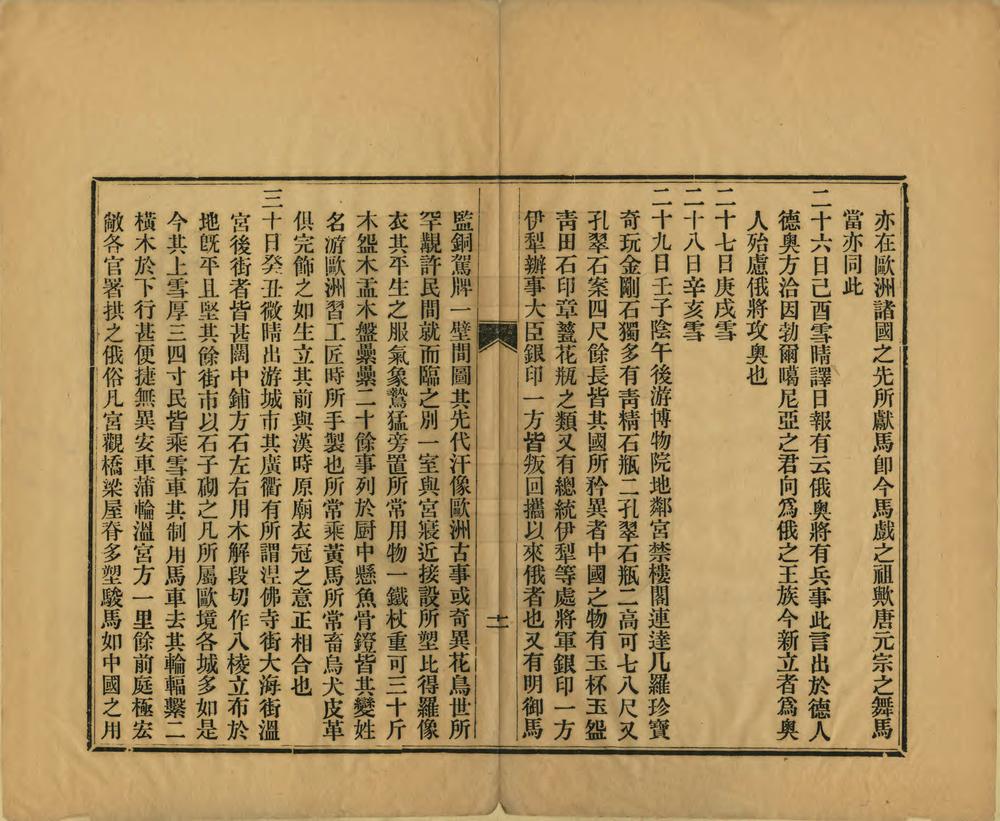 亦在歐洲諸國之先所獻馬卽今馬戲之祖歟唐元宗之舞馬
當亦同此
二十六日己酉雪晴譯日報有云俄奧將有兵事此言出於德人
德奧方洽因勃爾噶尼亞之君向爲俄之王族今新立者爲奧
人殆慮俄將攻奧也
二十七日庚戌雪
二十八日辛亥雪
二十九日壬子陰午後游博物院地鄰宮禁樓閣連達几羅珍寶
奇玩金剛石獨多有靑精石瓶二孔翠石瓶二高可七八尺又
孔翠石案四尺餘長皆其國所矜異者中國之物有玉杯玉盌
靑田石印章蓋花瓶之類又有總統伊犁等處將軍銀印一方
伊犁辦事大臣銀印一方皆叛回攜以來俄者也又有明御馬
十一
監銅駕牌一壁間圖其先代汗像歐洲古事或奇異花鳥世所
罕覯許民間就而臨之別一室與宮寢近接設所塑比得羅像
衣其平生之服氣象鷙猛旁置所常用物一鐵杖重可三十斤
木盌木盂木盤纍纍二十餘事列於厨中懸魚骨鐙皆其變姓
名游歐洲習工匠時所手製也所常乘黃馬所常畜鳥犬皮革
俱完飾之如生立其前與漢時原廟衣冠之意正相合也
三十日癸丑微晴出游城市其廣衢有所謂涅佛寺街大海街溫
宮後街者皆甚闊中鋪方石左右用木解段切作八棱立布於
地旣平且堅其餘街市以石子砌之凡所屬歐境各城多如是
今其上雪厚三四寸民皆乘雪車其制用馬車去其輪輻繫二
橫木於下行甚便捷無異安車蒲輪溫宮方一里餘前庭極宏
敞各官署拱之俄俗凡宮觀橋梁屋脊多塑駿馬如中國之用